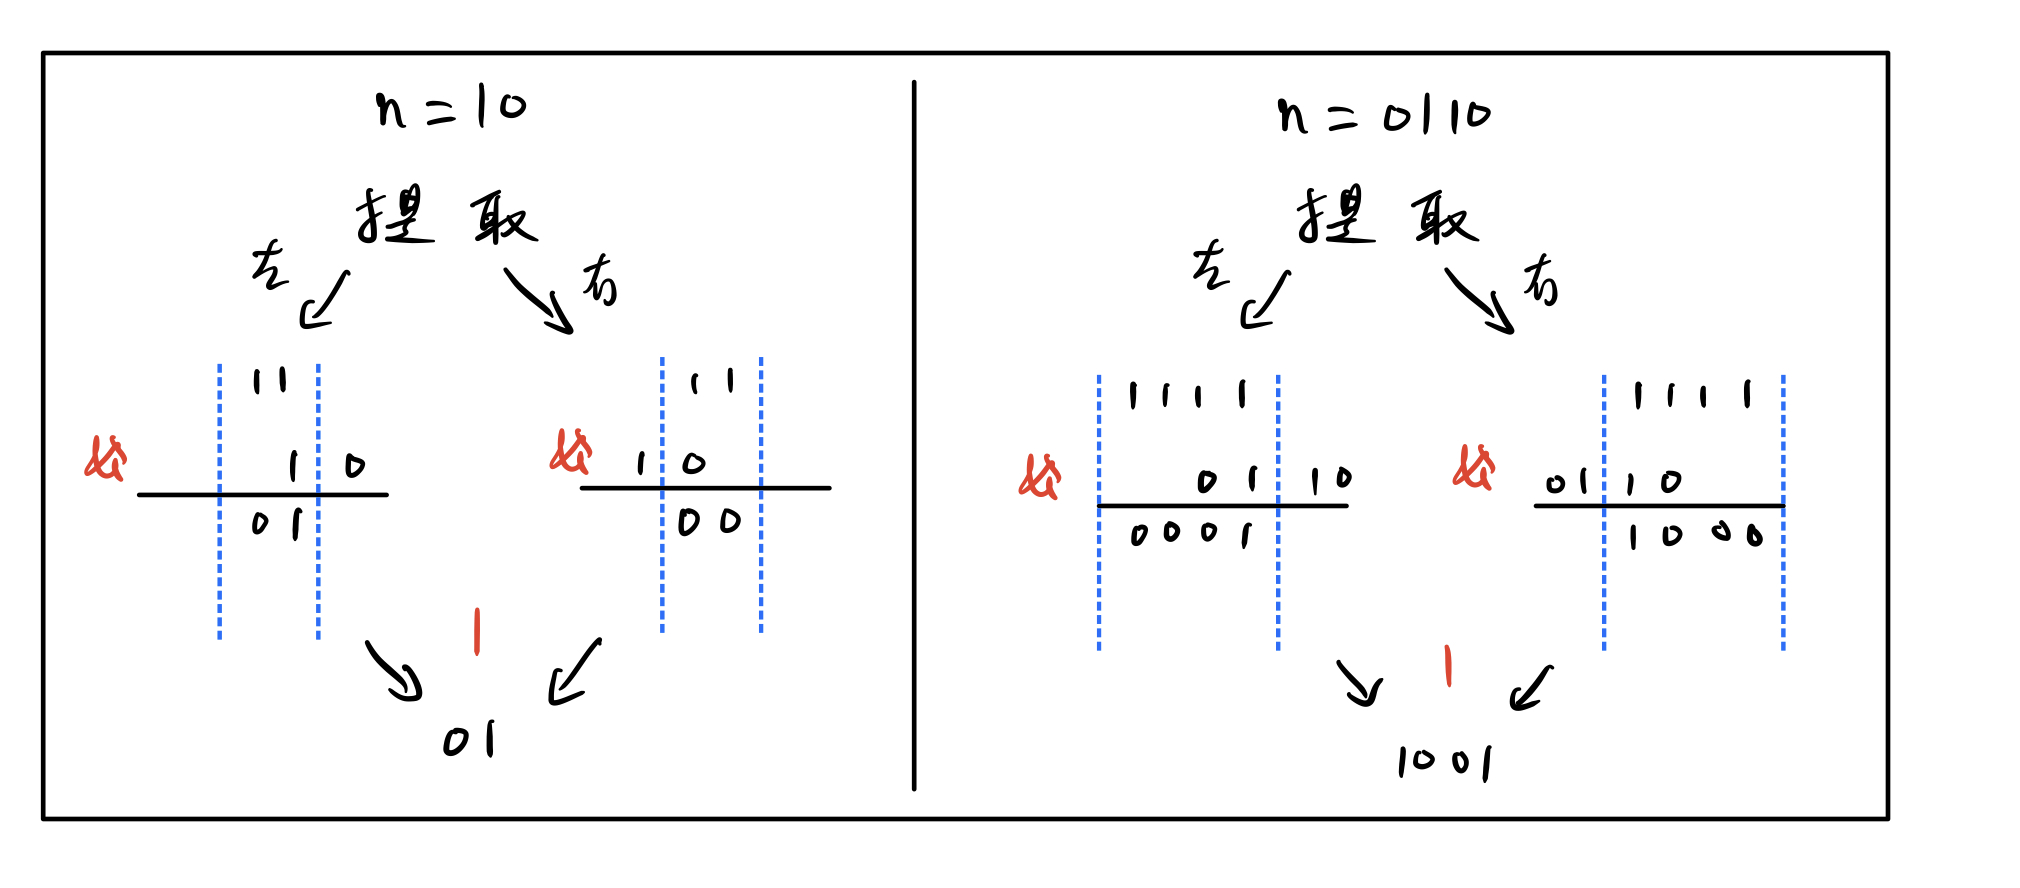 n = 10
提取
左 右
11
& 1 0
01
11
& 1 0
00
|
01
n = 0110
提取
左 右
1111
& 01 10
0001
1111
& 01 10
1000
|
1001